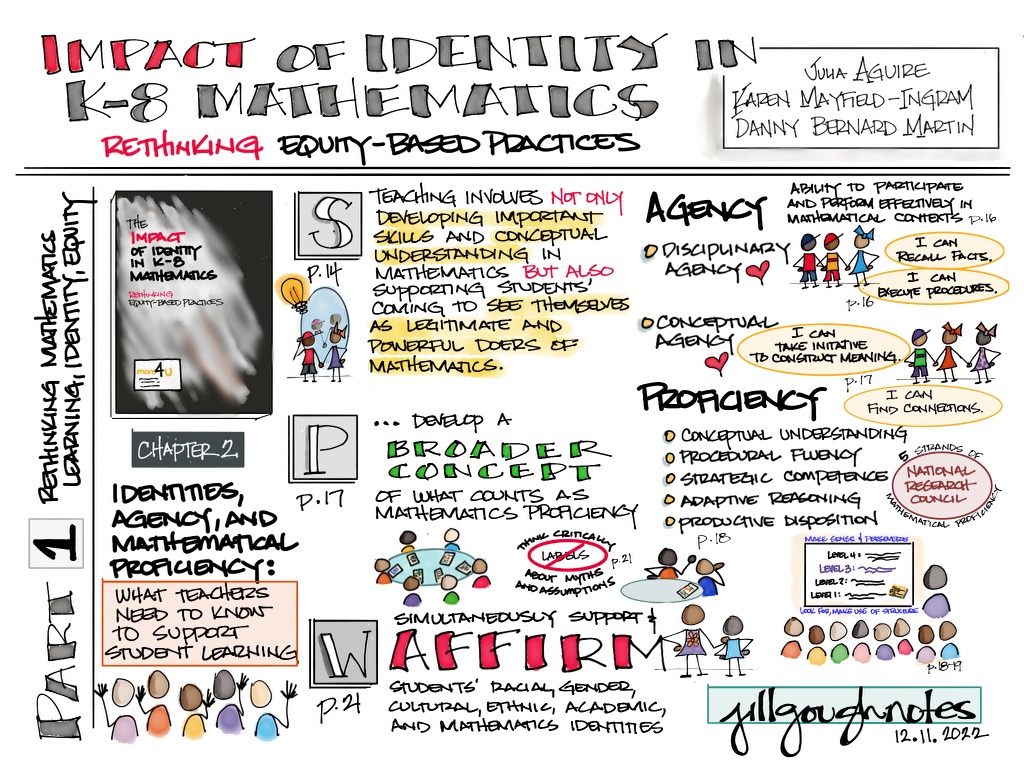 IMPACT OF IDENTITY IN
K-8 MATHEMATICS
RETHINKING EQUITY-BASED PRACTICES
JULIA AGUIRE
KAREN MAYFIELD-INGRAM
DANNY BERNARD MARTIN
PART 1
RETHINKING MATHEMATICS
LEARNING, IDENTITY, EQUITY
THE
IMPACT
OF IDENTITY
IN K-8
MATHEMATICS
RETHINKING
EQUITY-BASED PRACTICES
more4U
CHAPTER 2
IDENTITIES,
AGENCY, AND
MATHEMATICAL
PROFICIENCY:
WHAT TEACHERS
NEED TO KNOW
TO SUPPORT
STUDENT LEARNING
S
p.14
TEACHING INVOLVES NOT ONLY
DEVELOPING IMPORTANT
SKILLS AND CONCEPTUAL
UNDERSTANDING IN
MATHEMATICS BUT ALSO
SUPPORTING STUDENTS'
COMING TO SEE THEMSELVES
AS LEGITIMATE AND
POWERFUL DOERS OF
MATHEMATICS.
P
p.17
... DEVELOP A
BROADER
CONCEPT
OF WHAT COUNTS AS
MATHEMATICS PROFICIENCY
THINK CRITICALLY
LABELS
ABOUT MYTHS
AND ASSUMPTIONS
p.21
W
p.21
SIMULTANEOUSLY SUPPORT &
AFFIRM
STUDENTS' RACIAL, GENDER,
CULTURAL, ETHNIC, ACADEMIC,
AND MATHEMATICS IDENTITIES
AGENCY
ABILITY TO PARTICIPATE
AND PERFORM EFFECTIVELY IN
MATHEMATICAL CONTEXTS p.16
DISCIPLINARY
AGENCY
I CAN
RECALL FACTS.
I CAN
EXECUTE PROCEDURES.
p.16
CONCEPTUAL
AGENCY
I CAN
TAKE INITIATIVE
TO CONSTRUCT MEANING.
p.17
I CAN
FIND CONNECTIONS.
PROFICIENCY
CONCEPTUAL UNDERSTANDING
PROCEDURAL FLUENCY
STRATEGIC COMPETENCE
ADAPTIVE REASONING
PRODUCTIVE DISPOSITION
p.18
5 STRANDS OF
NATIONAL
RESEARCH
COUNCIL
MATHEMATICAL PROFICIENCY
MAKE SENSE & PERSEVERE
LEVEL 4:
LEVEL 3:
LEVEL 2:
LEVEL 1:
LOOK FOR, MAKE USE OF STRUCTURE
p.18-19
jillgoughnotes
12.11.2022